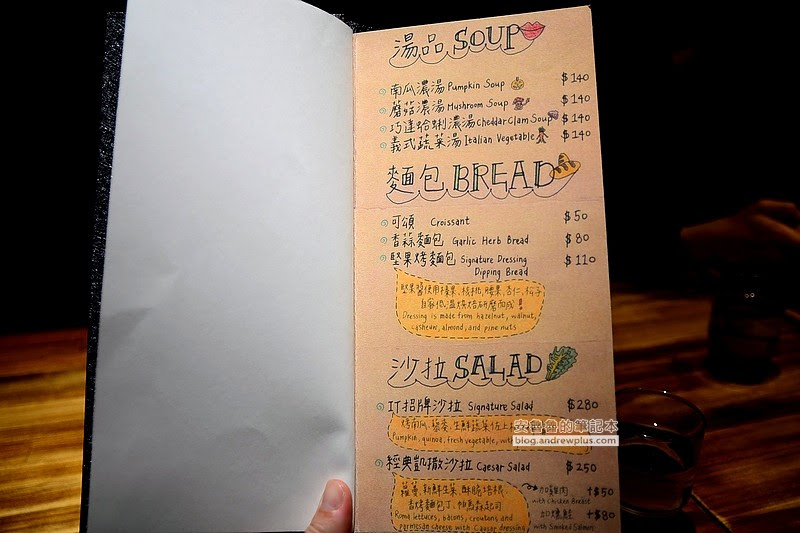 湯品 SOUP
南瓜濃湯 Pumpkin Soup $140
蘑菇濃湯 Mushroom Soup $140
巧達蛤蜊濃湯 Cheddar Clam Soup $140
義式蔬菜湯 Italian Vegetable $140
麵包 BREAD
可頌 Croissant $50
香蒜麵包 Garlic Herb Bread $80
堅果烤麵包 Signature Dressing $110
Dipping Bread
堅果醬使用榛果、核桃、腰果、杏仁、松子
自家低溫烘焙研磨而成!
Dressing is made from hazelnut, walnut,
cashew, almond, and pine nuts
沙拉 SALAD
IT招牌沙拉 Signature Salad $280
烤南瓜、藜麥、生鮮蔬果佐上
Pumpkin, quinoa, fresh vegetable, with
安魯魯的筆記本
blog.andrewplus.com
經典凱撒沙拉 Caesar Salad $250
蘿蔓、新鮮生菜、酥脆培根
香烤麵包丁、帕馬森起司
Roma lettuces, bacons, croutans and
parmesan cheese with Caesar dressing
加雞肉 +$50
with Chicken Breast
加燻鮭 +$80
with Smoked Salmon